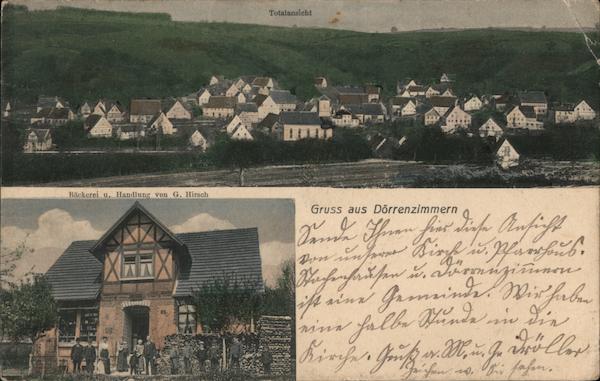 Totalansicht
Bäckerei u. Handlung von G. Hirsch
Gruss aus Dörrenzimmern
Sende Ihnen hier diese Ansicht
von unserer Kirch u. Pfarrhaus.
Stachenhausen u. Dörrenzimmern
ist eine Gemeinde. Wir haben
eine halbe Stunde in die
Kirche. Gruß a. M. u.